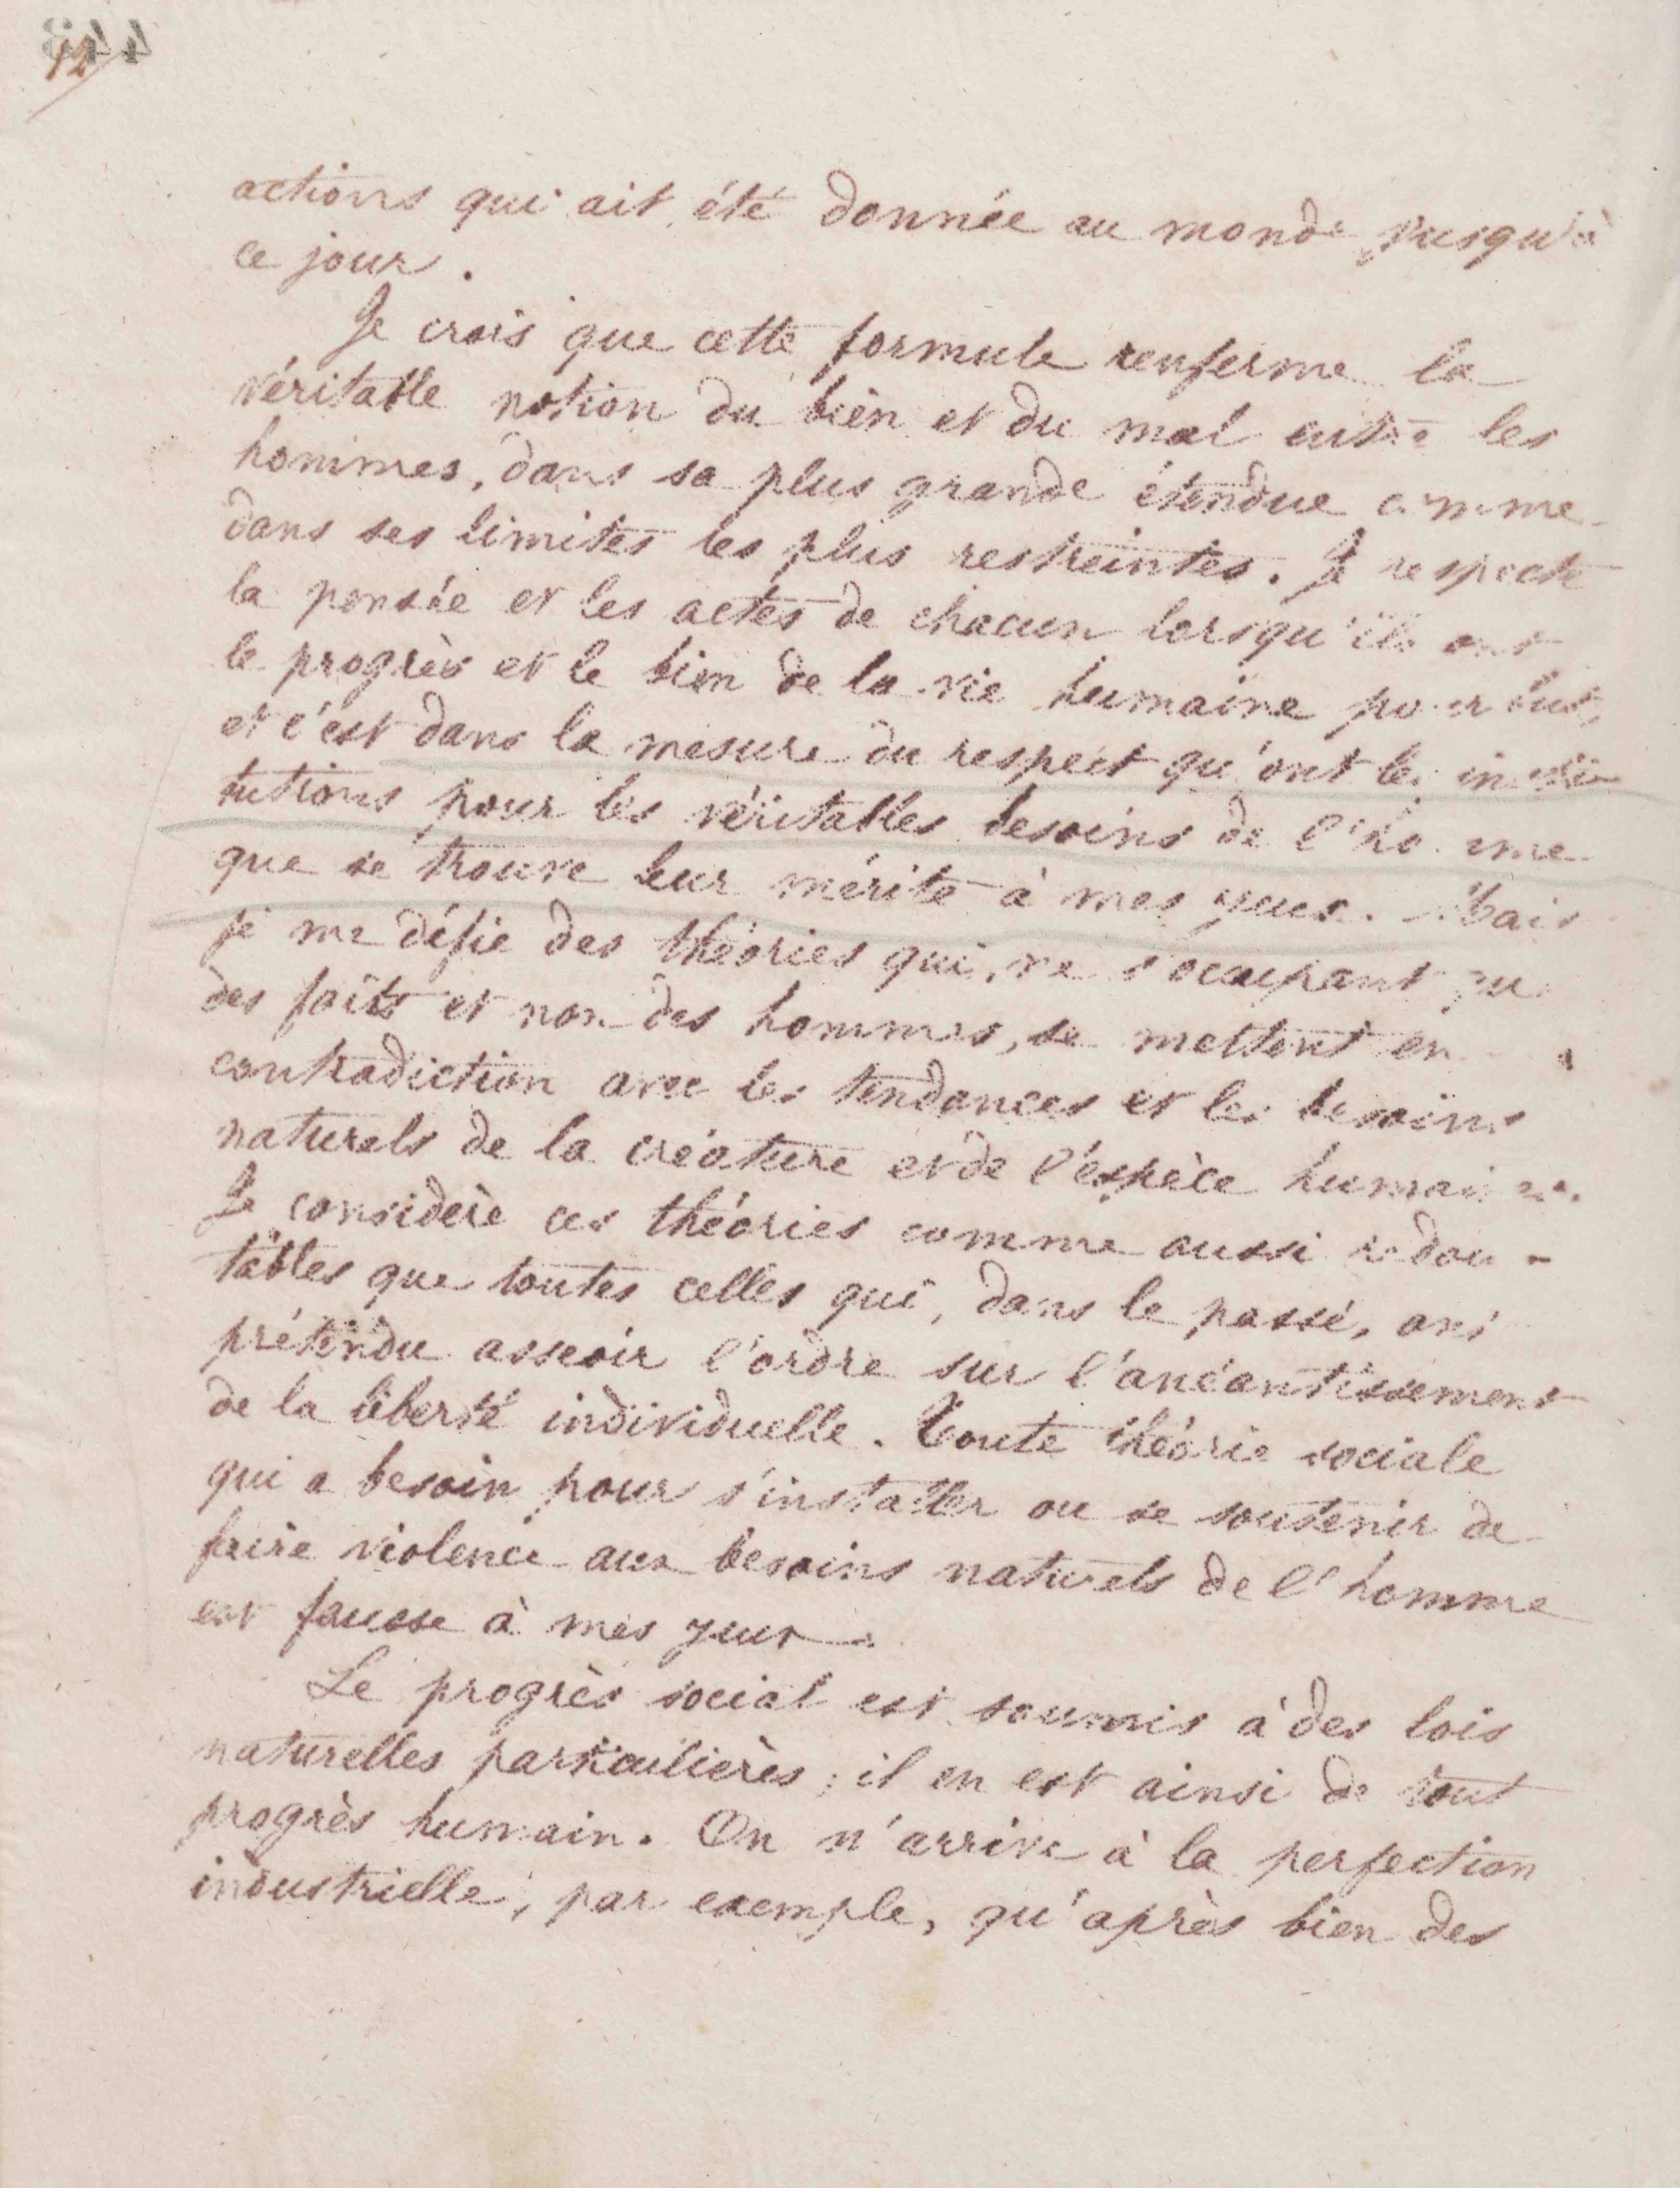 12
actions qui ait été donnée au monde jusqu'à
ce jour.
Je crois que cette formule renferme la
véritable notion du bien et du mal entre les
hommes, dans sa plus grande étendue comme
dans ses limites les plus restreintes. Je respecte
la pensée et les actes de chacun lorsqu'ils ont
le progrès et le bien de la vie humaine pour but,
et c'est dans la mesure du respect qu'ont les insti-
tutions pour les véritables besoins de l'homme
que se trouve leur mérite à mes yeux. Mais
je me défie des théories qui, ne s'occupant que
des faits et non des hommes, se mettent en
contradiction avec les tendances et les besoins
naturels de la créature et de l'espèce humaine.
Je considère ces théories comme aussi redou-
tables que toutes celles qui, dans le passé, ont
prétendu asseoir l'ordre sur l'anéantissement
de la liberté individuelle. Toute théorie sociale
qui a besoin pour s'installer ou se soutenir de
faire violence aux besoins naturels de l'homme
est fausse à mes yeux.
Le progrès social est soumis à des lois
naturelles particulières ; il en est ainsi de tout
progrès humain. On n'arrive à la perfection
industrielle, par exemple, qu'après bien des